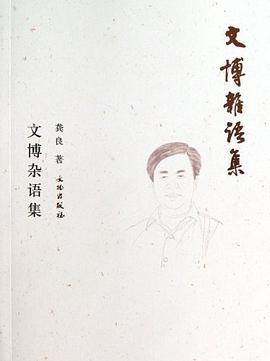 文博雜語集
龚良 著
文物出版社
文博杂语集